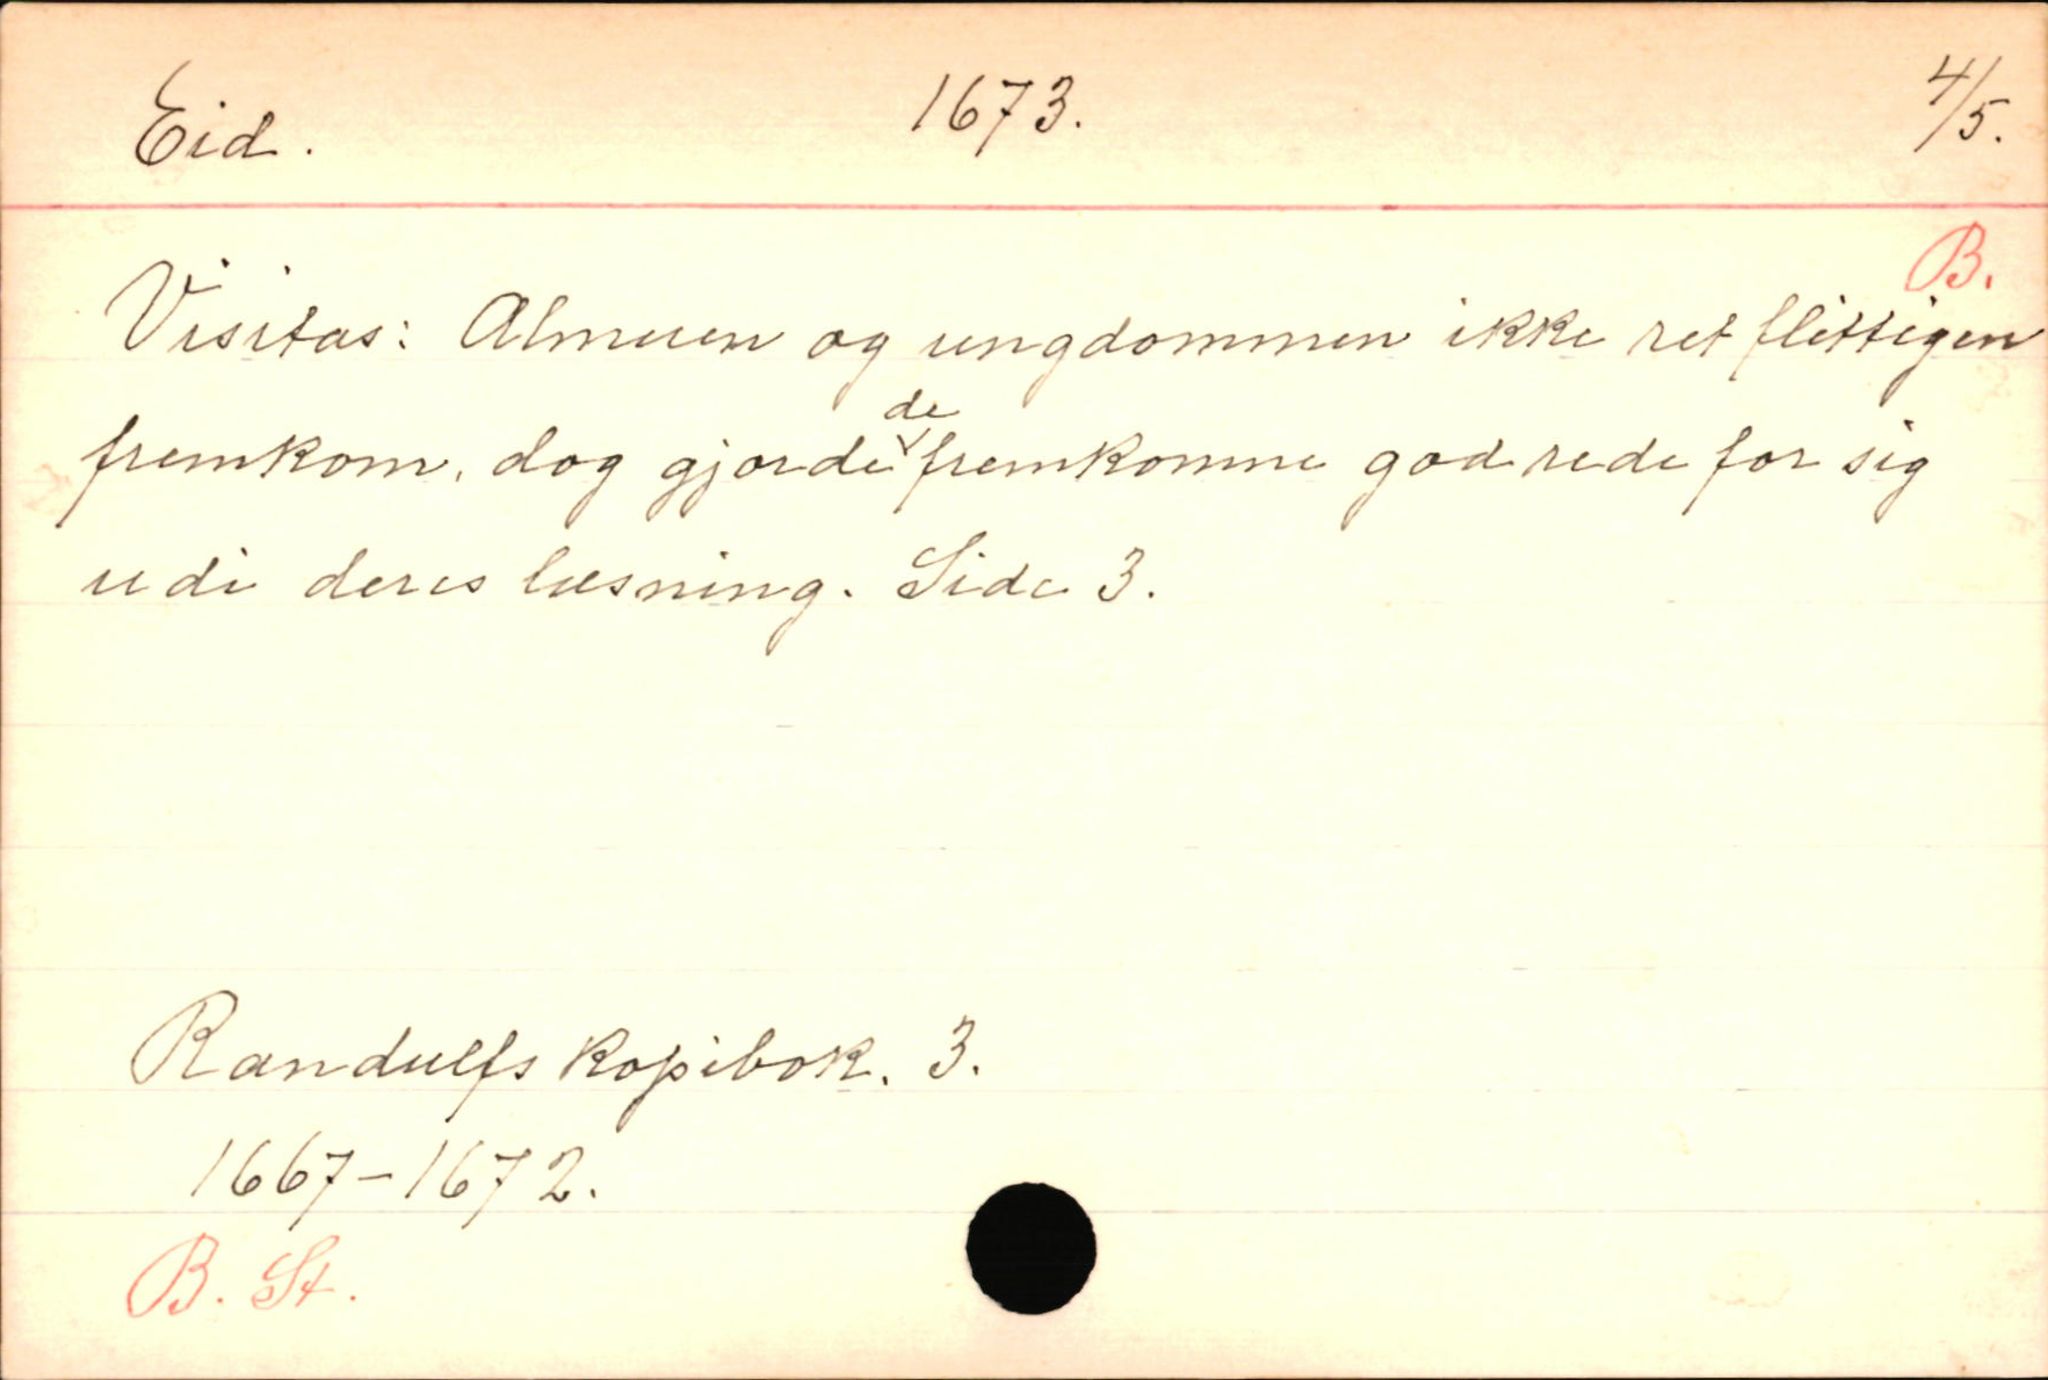 Eid. 1673. 4/5.
B.
Visitas: Almuen og ungdommen ikke ret flittigen
fremkom, dog gjorde de fremkomne god rede for sig
udi deres læsning. Side 3.
Randulfs Kopibok. 3.
1667-1672.
B. St.